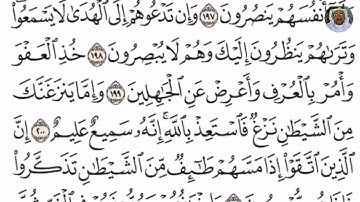 أَنفُسَهُمْ يَنصُرُونَ ١٩٧ وَإِن تَدْعُوهُمْ إِلَى ٱلْهُدَىٰ لَا يَسْمَعُوا۟
وَتَرَىٰهُمْ يَنظُرُونَ إِلَيْكَ وَهُمْ لَا يُبْصِرُونَ ١٩٨ خُذِ ٱلْعَفْوَ
وَأْمُرْ بِٱلْعُرْفِ وَأَعْرِضْ عَنِ ٱلْجَٰهِلِينَ ١٩٩ وَإِمَّا يَنزَغَنَّكَ
مِنَ ٱلشَّيْطَٰنِ نَزْغٌ فَٱسْتَعِذْ بِٱللَّهِ إِنَّهُۥ سَمِيعٌ عَلِيمٌ ٢٠٠ إِنَّ
ٱلَّذِينَ ٱتَّقَوْا۟ إِذَا مَسَّهُمْ طَٰٓئِفٌ مِّنَ ٱلشَّيْطَٰنِ تَذَكَّرُوا۟